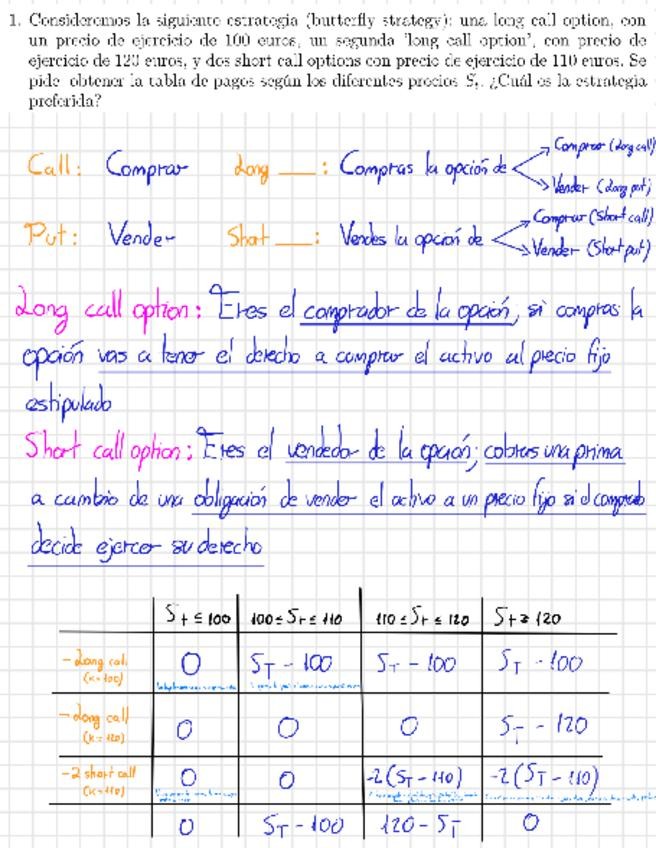 1. Consideremos la siguiente estrategia (butterfly strategy): una long call option, con
un precio de ejercicio de 100 euros, un segunda 'long call option', con precio de
ejercicio de 120 euros, y dos short call options con precio de ejercicio de 110 euros. Se
pide obtener la tabla de pagos según los diferentes precios Sₜ. ¿Cuál es la estrategia
preferida?
Call: Comprar Long ___: Compras la opción de Comprar (Long call)
Vender (Long put)
Put: Vender Short ___: Vendes la opción de Comprar (Short call)
Vender (Short put)
Long call option: Eres el comprador de la opción, si compras la
opción vas a tener el derecho a comprar el activo al precio fijo
estipulado
Short call option: Eres el vendedor de la opción; cobras una prima
a cambio de una obligación de vender el activo a un precio fijo si el comprador
decide ejercer su derecho
S_T ≤ 100 100 ≤ S_T ≤ 110 110 ≤ S_T ≤ 120 S_T ≥ 120
- Long call 0 S_T - 100 S_T - 100 S_T - 100
(K=100)
- Long call 0 0 0 S_T - 120
(K=120)
- 2 short call 0 0 -2(S_T - 110) -2(S_T - 110)
(K=110)
0 S_T - 100 120 - S_T 0